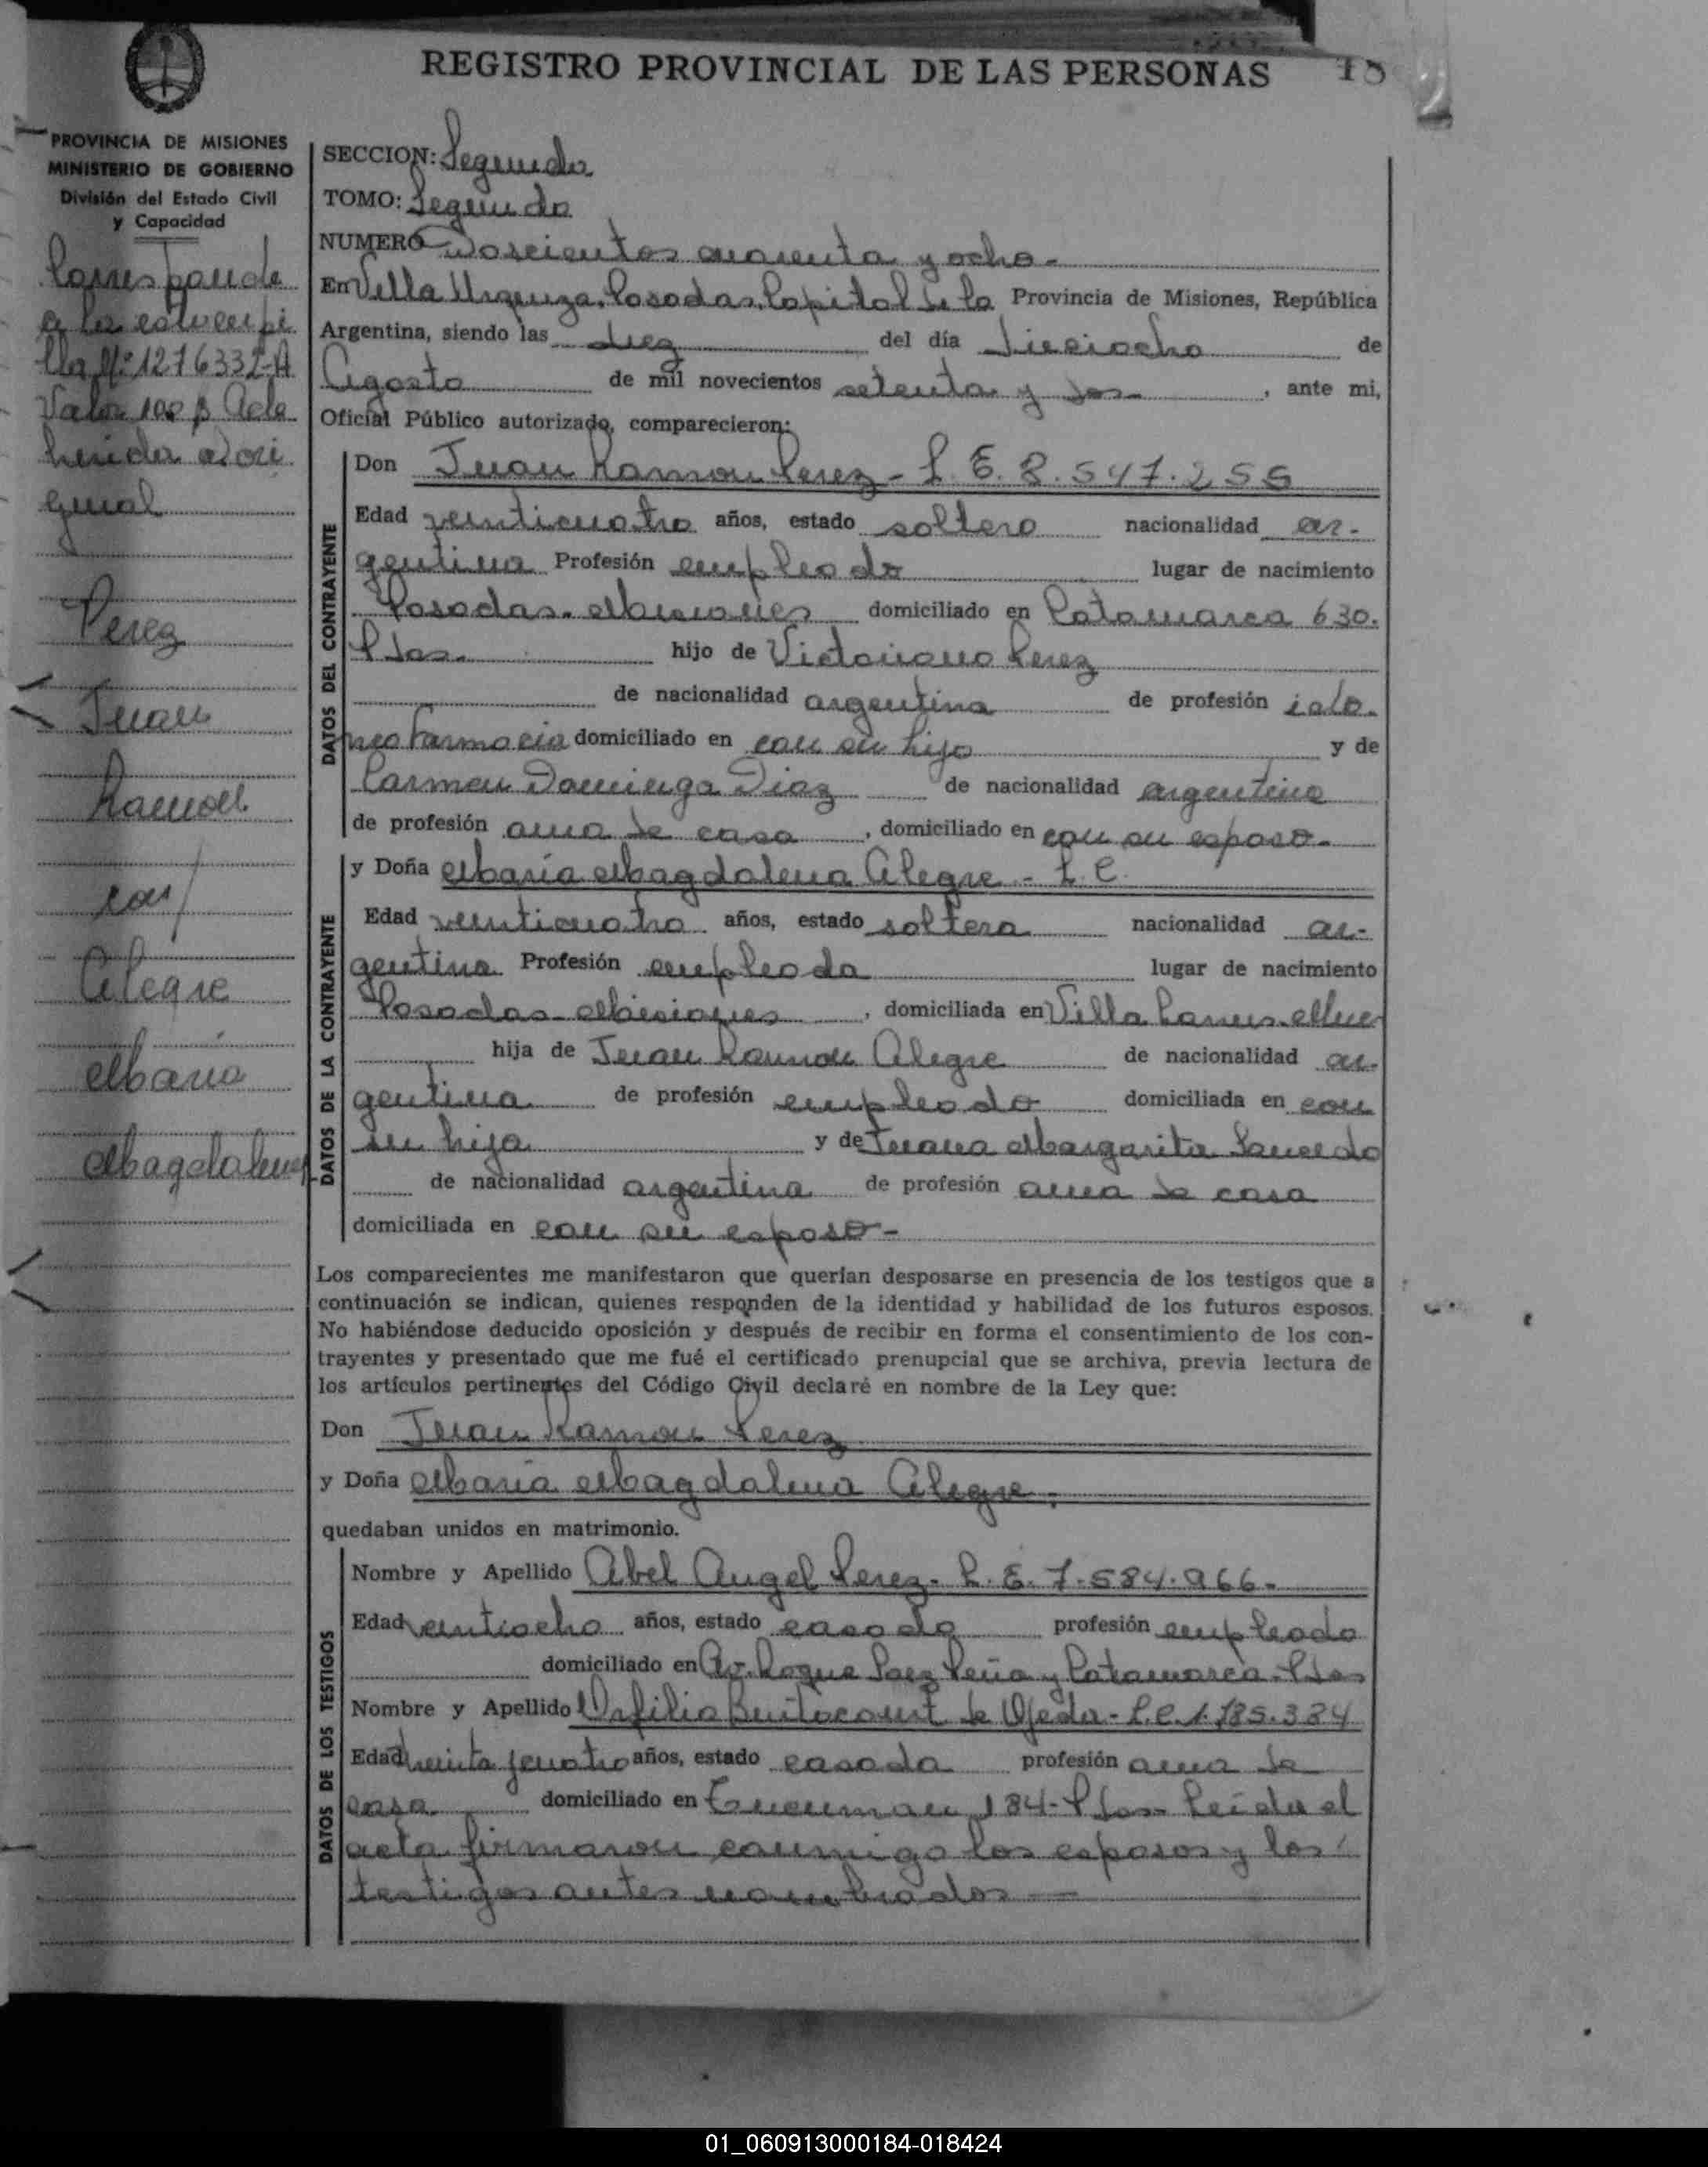 REGISTRO PROVINCIAL DE LAS PERSONAS
PROVINCIA DE MISIONES
MINISTERIO DE GOBIERNO
División del Estado Civil
y Capacidad
Corresponde
a la estampi
lla Nº 1276332-A
Valor 100 $ Ade
herida a Ori
ginal
Perez
Juan
Ramon
con/
Alegre
Maria
Magdalena
SECCION: Segunda
TOMO: Segundo
NUMERO Doscientos cuarenta y ocho.-
En Villa Urquiza, Posadas, Capital de la Provincia de Misiones, República
Argentina, siendo las diez del día dieciocho de
Agosto de mil novecientos setenta y dos , ante mi,
Oficial Público autorizado, comparecieron:
DATOS DEL CONTRAYENTE
Don Juan Ramon Perez - L. E. 8.547.255
Edad veinticuatro años, estado soltero nacionalidad ar-
gentina Profesión empleado lugar de nacimiento
Posadas - Misiones domiciliado en Catamarca 630.
Pdas. hijo de Victoriano Perez
de nacionalidad argentina de profesión idó-
neo farmacia domiciliado en con su hijo y de
Carmen Dominga Diaz de nacionalidad argentina
de profesión ama de casa , domiciliado en con su esposo.-
DATOS DE LA CONTRAYENTE
y Doña Maria Magdalena Alegre - L. C.
Edad veinticuatro años, estado soltera nacionalidad ar-
gentina Profesión empleada lugar de nacimiento
Posadas - Misiones , domiciliada en Villa Lanus
hija de Juan Ramon Alegre de nacionalidad ar-
gentina de profesión empleado domiciliada en con
su hija y de Juana Margarita Saucedo
de nacionalidad argentina de profesión ama de casa
domiciliada en con su esposo -
Los comparecientes me manifestaron que querían desposarse en presencia de los testigos que a
continuación se indican, quienes responden de la identidad y habilidad de los futuros esposos.
No habiéndose deducido oposición y después de recibir en forma el consentimiento de los con-
trayentes y presentado que me fué el certificado prenupcial que se archiva, previa lectura de
los artículos pertinentes del Código Civil declaré en nombre de la Ley que:
Don Juan Ramon Perez
y Doña Maria Magdalena Alegre.
quedaban unidos en matrimonio.
DATOS DE LOS TESTIGOS
Nombre y Apellido Abel Angel Perez - L. E. 7.584.966.-
Edad veintiocho años, estado casado profesión empleado
domiciliado en Av. Roque Saez Peña y Catamarca - Pdas
Nombre y Apellido Orfilia de Ojeda - L.C.
Edad treinta y cuatro años, estado casada profesión ama de
casa domiciliado en Tucuman 184 - Pdas - Leída el
acta firmaron conmigo los esposos y los
testigos antes nombrados
01_060913000184-018424